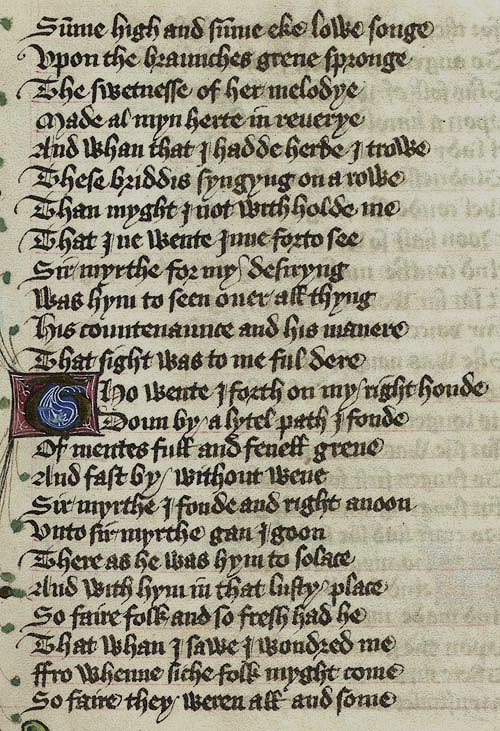 Sūme high and sūme eke lowe songe
Vpon the braunches grene spronge
The swetnesse of her melodye
Made al myn herte in reuerye
And whan that I hadde herde I trowe
These briddis syngyng on a rowe
Than myght I not withholde me
That I ne wente inne forto see
Sir myrthe for my / desiryng
Was hym to seen ouer all thyng
His countenaunce and his manere
That sight was to me ful dere
Tho wente I forth on my / right honde
Doun by / a lytel path I fonde
Of mentes full and fenell grene
And fast by / without wene
Sir myrthe I fonde and right anoon
Vnto sir myrthe gan I goon
There as he was hym to solace
And with hym in that lusty / place
So faire folk and so fresh had he
That whan I sawe I wondred me
ffro whenne siche folk myght come
So faire they / weren all and some